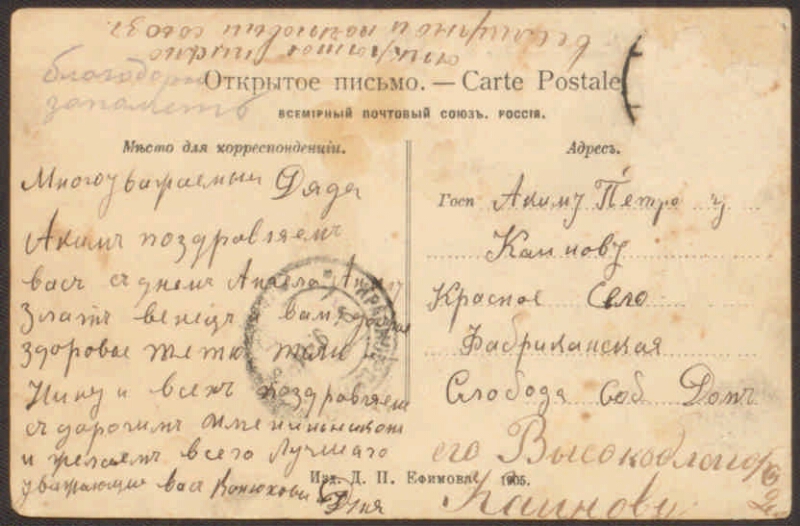 всемирной почтовый союз
открытое письмо
благодарю
запаметь
Открытое письмо. — Carte Postale
ВСЕМІРНЫЙ ПОЧТОВЫЙ СОЮЗЪ. РОССІЯ.
Мѣсто для корреспонденціи.
Многоуважаемый Дядя
Акимъ поздровляемъ
васъ съ днемъ Ангела Акиму
Златъ венецъ вам
здоровье тетю и
Нину и всехъ поздровляем
съ дорогимъ имениньником
и желаемъ всего Лучшаго
уважающие вас Конюховы
Адресъ.
Госп Акиму Петро чу
Каинову
Красное Село
Фабриканская
Слобода соб Домъ
его Высокоблагор
Каинову
Изд. Д. П. Ефимова 1905.